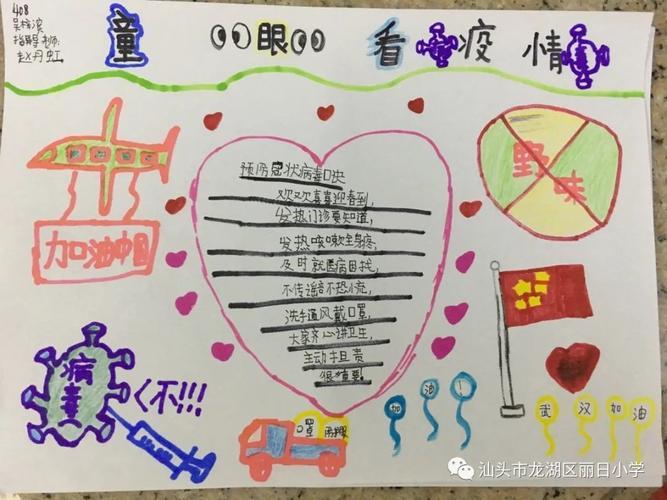 408
指导老师:
赵丹虹
童眼看疫情
预防冠状病毒口诀
欢欢喜喜迎春到,
发热门诊要知道,
发热咳嗽全身疼,
及时就医病因找,
不传谣言不恐小症,
洗手通风戴口罩,
大家齐心讲卫生,
主动担责
很重要。
野味
加油中国
病毒
不!!!
口罩
加油!
武汉加油
汕头市龙湖区丽日小学